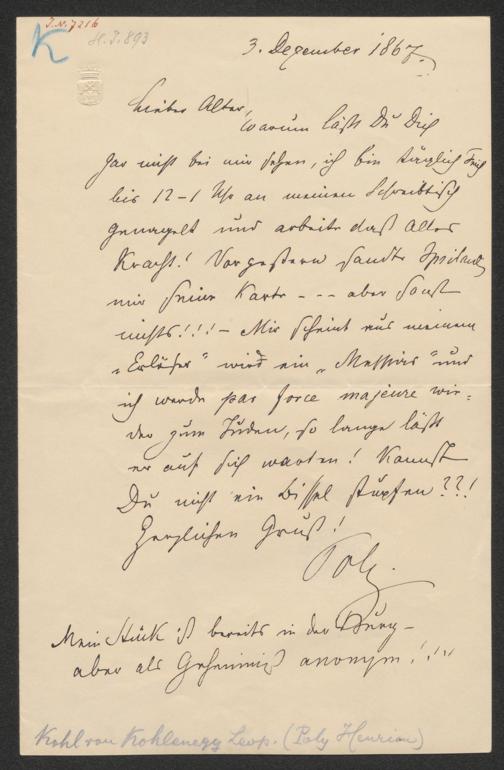 J.N. 7216
K H.J. 893
3. Dezember 1867.
Lieber Alter,
Warum läßt Du Dich
gar nicht bei mir sehen, ich bin täglich früh
bis 12-1 Uhr an meinen Schreibtisch
genagelt und arbeite daß Alles
kracht! Vorgestern sandte
mir seine Karte - - - aber sonst
nichts!!! - Mir scheint aus meinem
„Erlöser" wird ein „Messias" und
ich werde par force majeure wie-
der zum Juden, so lange läßt
er auf sich warten! Kannst
Du nicht ein bissel stupfen??!
Herzlichen Gruß!
Poly.
Mein Stück ist bereits in der Burg -
aber als Geheimniß anonym!!!!
Kohl von Kohlenegg Leop. (Poly Henrion)